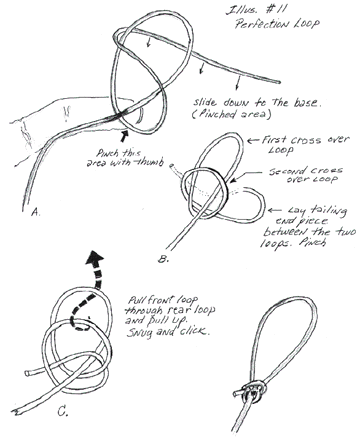 Illus. #11
Perfection Loop
slide down to the base.
(Pinched area)
Pinch this
area with thumb
A.
First cross over
Loop
Second cross
over Loop
Lay tailing
end piece
between the two
loops. Pinch
B.
Pull front loop
through rear loop
and pull up.
Snug and click.
C.